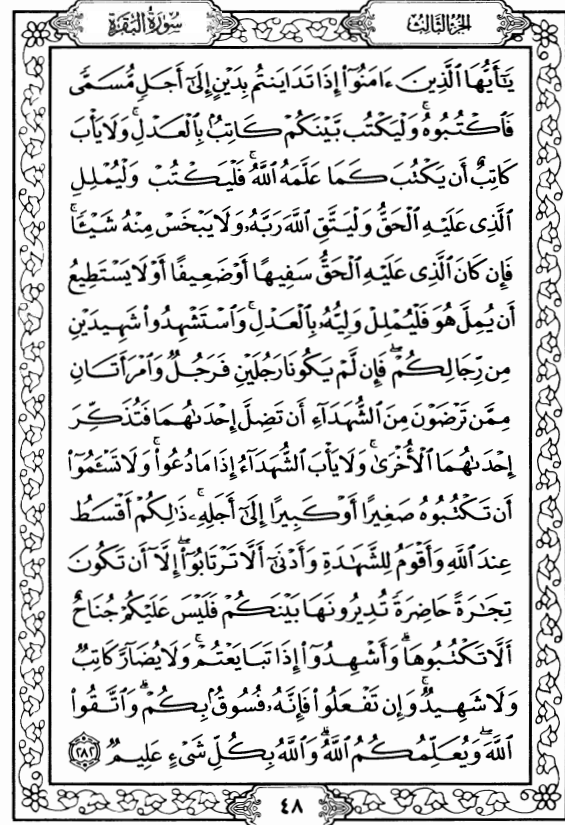 سُورَةُ البَقَرَةِ
الجزء الثالث
يَٰٓأَيُّهَا ٱلَّذِينَ ءَامَنُوٓا۟ إِذَا تَدَايَنتُم بِدَيْنٍ إِلَىٰٓ أَجَلٍ مُّسَمًّى
فَٱكْتُبُوهُ ۚ وَلْيَكْتُب بَّيْنَكُمْ كَاتِبٌۢ بِٱلْعَدْلِ ۚ وَلَا يَأْبَ
كَاتِبٌ أَن يَكْتُبَ كَمَا عَلَّمَهُ ٱللَّهُ ۚ فَلْيَكْتُبْ وَلْيُمْلِلِ
ٱلَّذِى عَلَيْهِ ٱلْحَقُّ وَلْيَتَّقِ ٱللَّهَ رَبَّهُۥ وَلَا يَبْخَسْ مِنْهُ شَيْـًٔا ۚ
فَإِن كَانَ ٱلَّذِى عَلَيْهِ ٱلْحَقُّ سَفِيهًا أَوْ ضَعِيفًا أَوْ لَا يَسْتَطِيعُ
أَن يُمِلَّ هُوَ فَلْيُمْلِلْ وَلِيُّهُۥ بِٱلْعَدْلِ ۚ وَٱسْتَشْهِدُوا۟ شَهِيدَيْنِ
مِن رِّجَالِكُمْ ۖ فَإِن لَّمْ يَكُونَا رَجُلَيْنِ فَرَجُلٌ وَٱمْرَأَتَانِ
مِمَّن تَرْضَوْنَ مِنَ ٱلشُّهَدَآءِ أَن تَضِلَّ إِحْدَىٰهُمَا فَتُذَكِّرَ
إِحْدَىٰهُمَا ٱلْأُخْرَىٰ ۚ وَلَا يَأْبَ ٱلشُّهَدَآءُ إِذَا مَا دُعُوا۟ ۚ وَلَا تَسْـَٔمُوٓا۟
أَن تَكْتُبُوهُ صَغِيرًا أَوْ كَبِيرًا إِلَىٰٓ أَجَلِهِۦ ۚ ذَٰلِكُمْ أَقْسَطُ
عِندَ ٱللَّهِ وَأَقْوَمُ لِلشَّهَٰدَةِ وَأَدْنَىٰٓ أَلَّا تَرْتَابُوٓا۟ ۖ إِلَّآ أَن تَكُونَ
تِجَٰرَةً حَاضِرَةً تُدِيرُونَهَا بَيْنَكُمْ فَلَيْسَ عَلَيْكُمْ جُنَاحٌ
أَلَّا تَكْتُبُوهَا ۗ وَأَشْهِدُوٓا۟ إِذَا تَبَايَعْتُمْ ۚ وَلَا يُضَآرَّ كَاتِبٌ
وَلَا شَهِيدٌ ۚ وَإِن تَفْعَلُوا۟ فَإِنَّهُۥ فُسُوقٌۢ بِكُمْ ۗ وَٱتَّقُوا۟
ٱللَّهَ ۖ وَيُعَلِّمُكُمُ ٱللَّهُ ۗ وَٱللَّهُ بِكُلِّ شَىْءٍ عَلِيمٌ ٢٨٢
٤٨